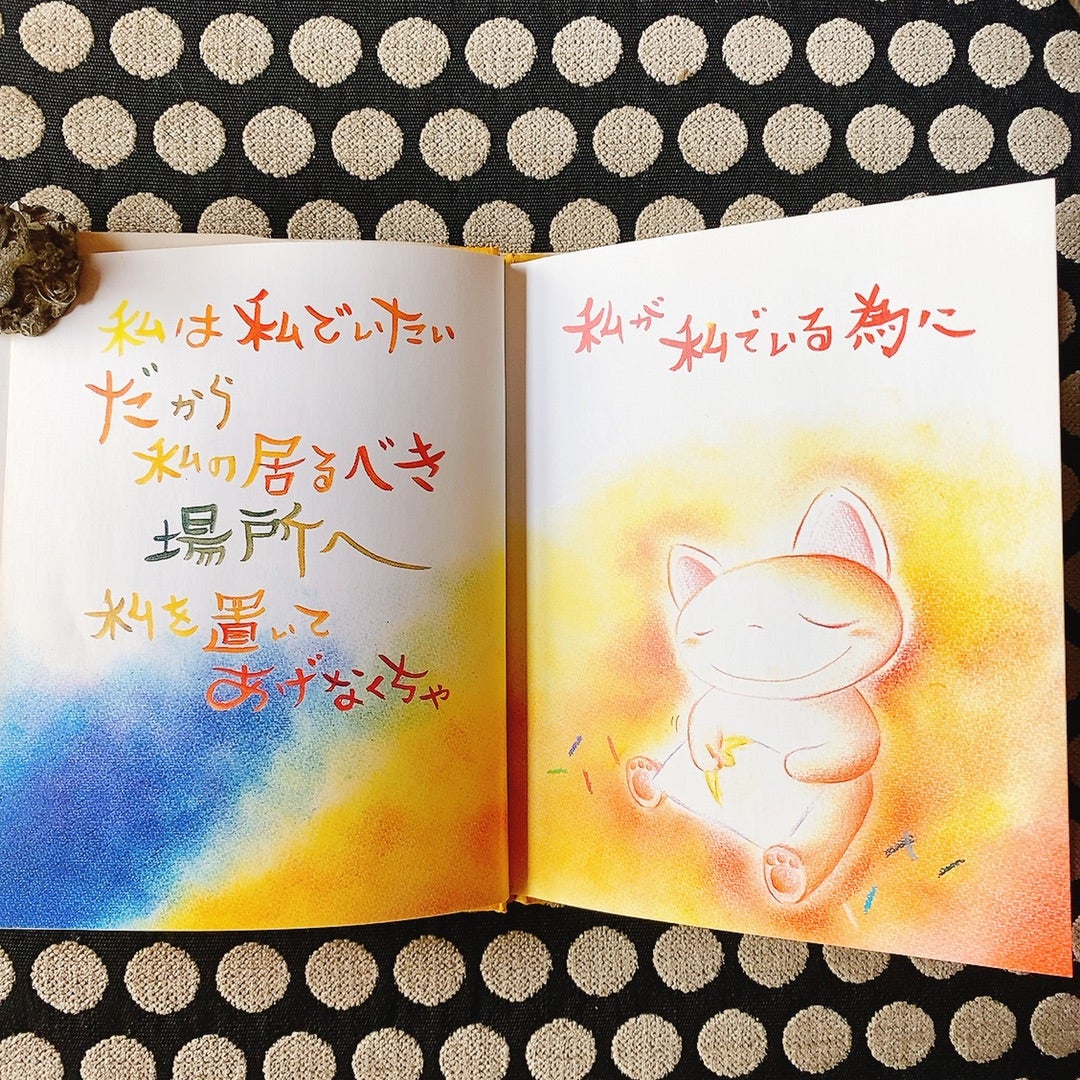 私は私でいたい
だから
私の居るべき
場所へ
私を置いて
あげなくちゃ
私が私でいる為に